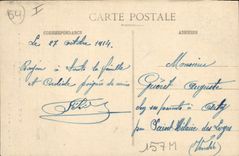 64 I
CARTE POSTALE
CORRESPONDANCE
ADRESSE
Le 27 octobre 1914
Bonjour à toute la famille
et Cordiale poignée de main
Monsieur
Guéret Auguste
chez ses parents à
par Saint Hilaire des Loges
(Vendée)
157M